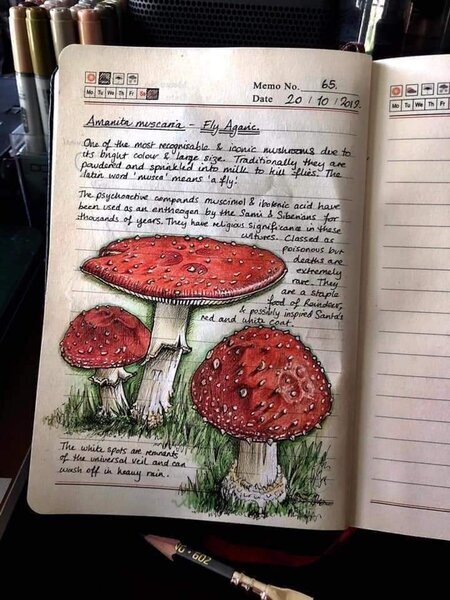 Memo No. 65.
Mo Tu We Th Fr Sa
Date 20 / 10 / 2019.
Amanita muscaria - Fly Agaric.
One of the most recognisable & iconic mushrooms due to
its bright colour & large size. Traditionally they are
powdered and sprinkled into milk to kill flies. The
latin word 'musca' means 'a fly!'
The psychoactive compounds muscimol & ibotenic acid have
been used as an entheogen by the Sami & Siberians for
thousands of years. They have religious significance in these
cultures. Classed as
poisonous but
deaths are
extremely
rare. They
are a staple
food of Reindeer,
& possibly inspired Santa's
red and white coat.
The white spots are remnants
of the universal veil and can
wash off in heavy rain.
Mo Tu We Th Fr
602